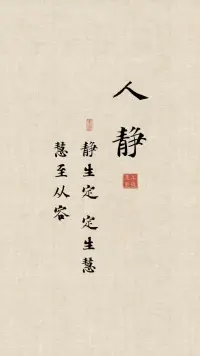 人静
静生定 定生慧
慧至从容